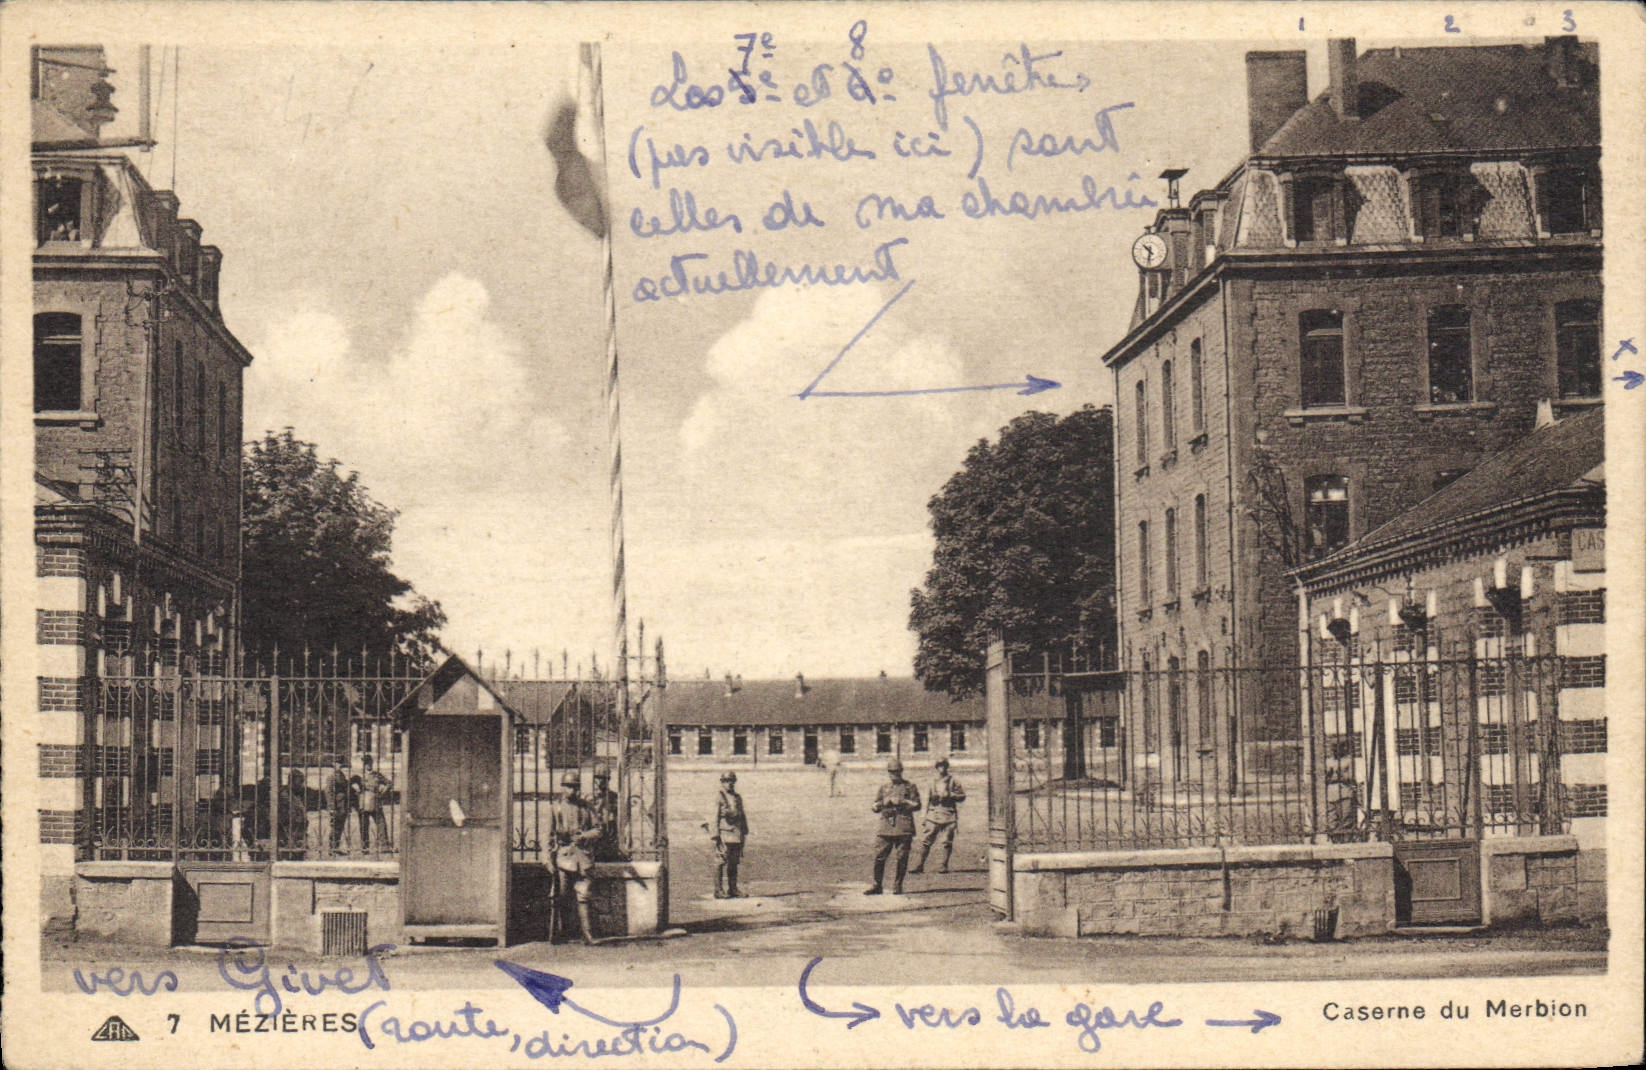 1 2 3
7e 8
Les 5e et 6e fenêtres
(pas visibles ici) sont
celles de ma chambre
actuellement
x
CAS
vers Givet
(route, direction)
vers la gare
CAP 7 MÉZIÈRES
Caserne du Merbion